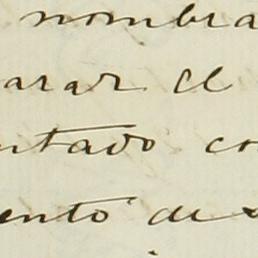 nombra
arar el
ntado co
ento des